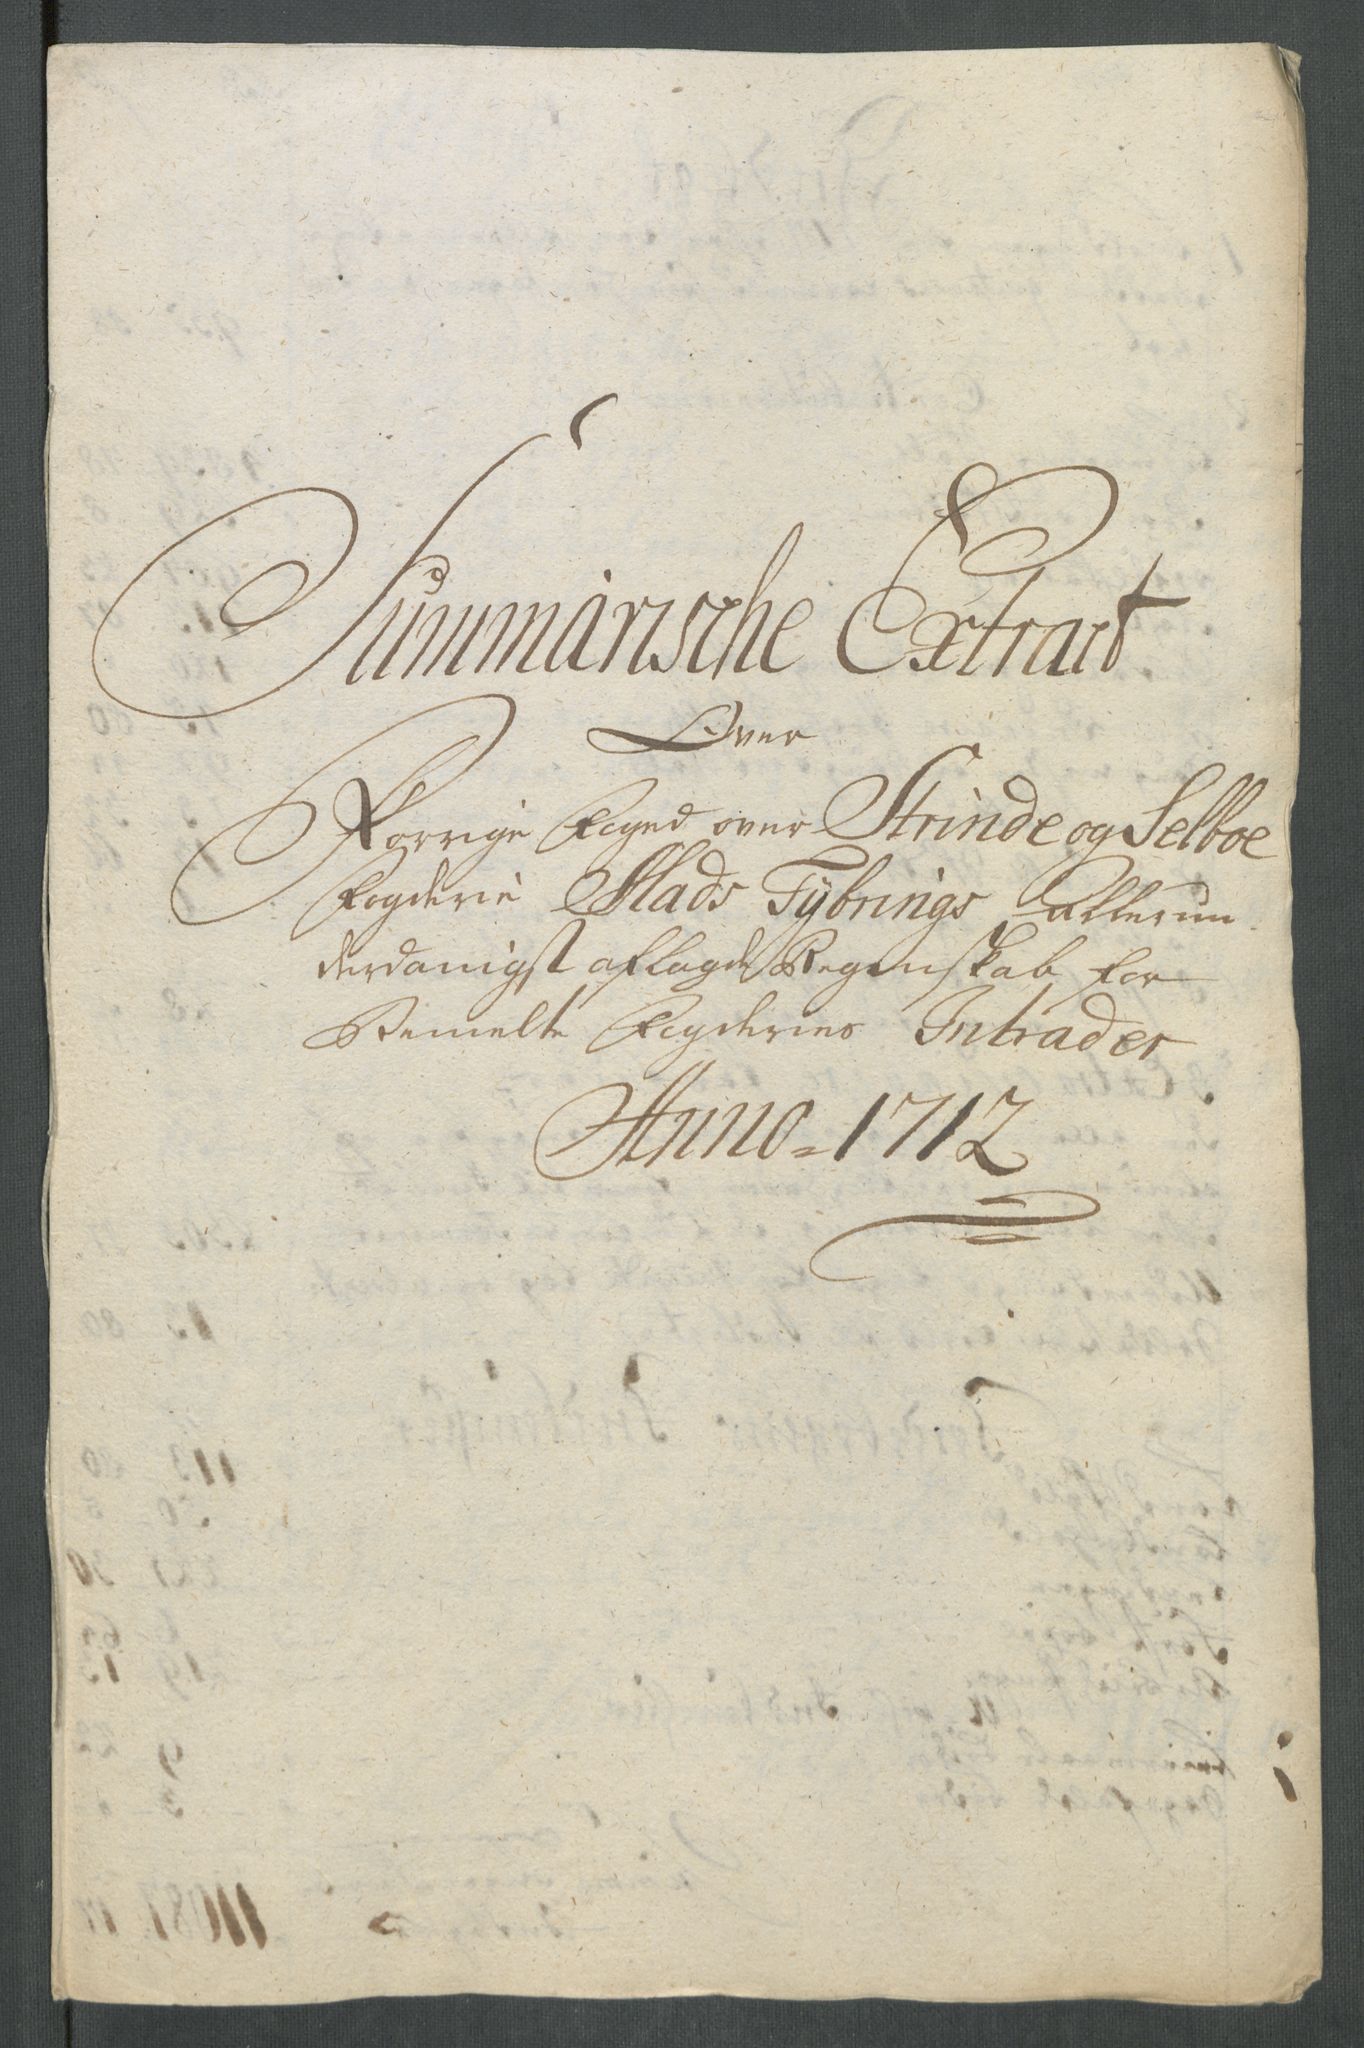 Summarische Extract
Over
Forrige Foged over Strinde og Selboe
Fogderie Mads Tybrings allerun
derdanigst aflagde Regenskab for
Bemelte Fogderies Intrader
Anno 1712